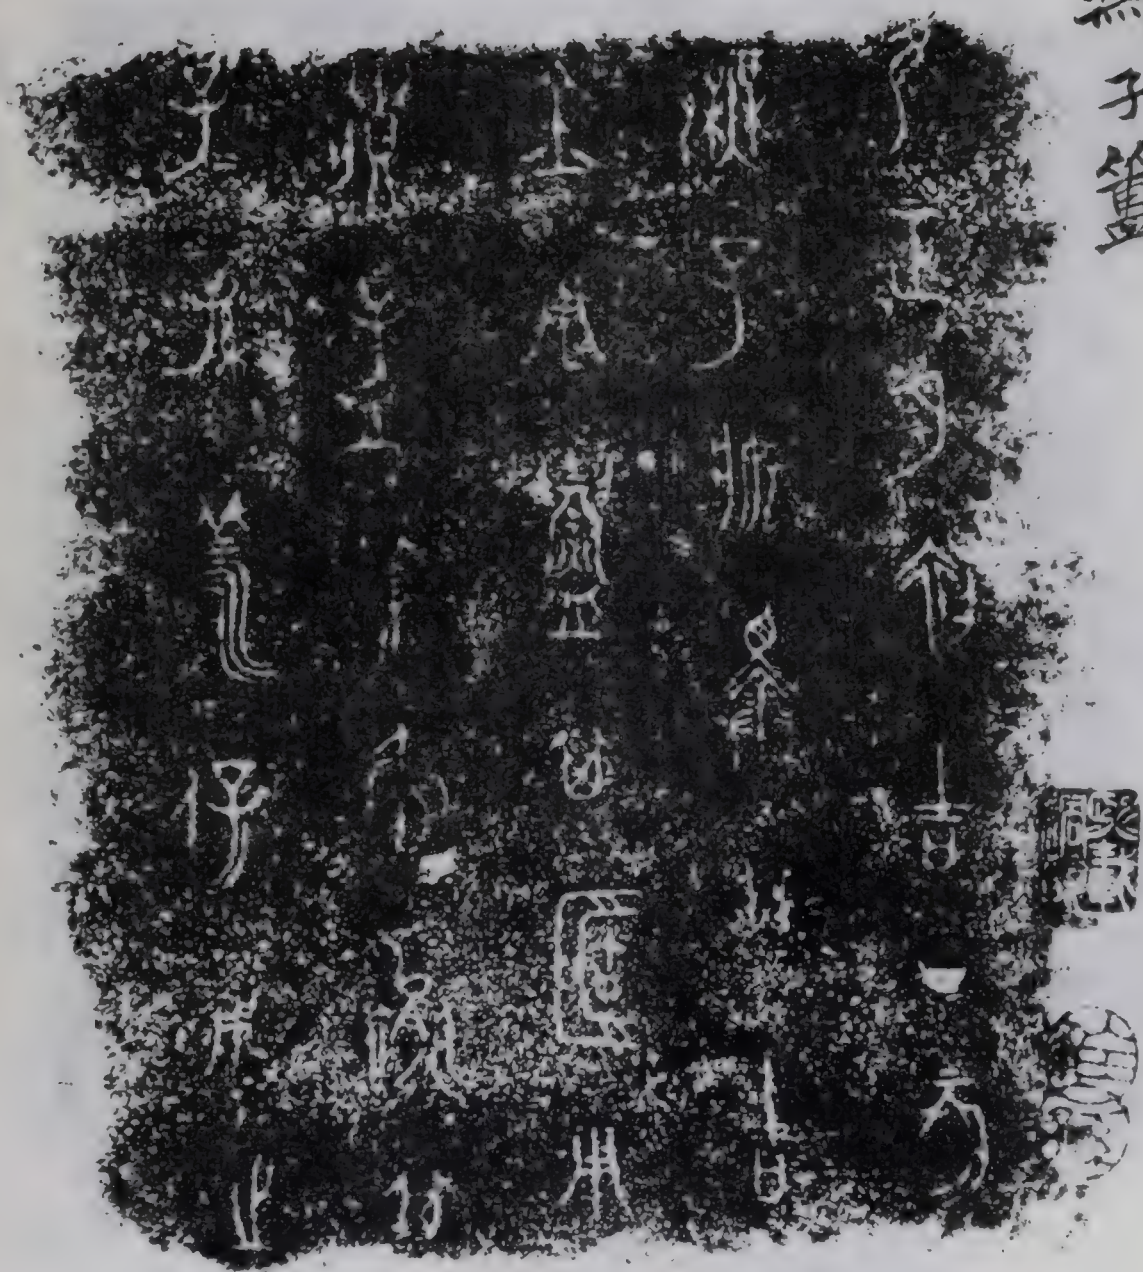 子簠
正月初吉丁亥
鄦子妝擇其吉
金用鑄其簠用
賸孟姜秦嬴其
子孫羕保用之